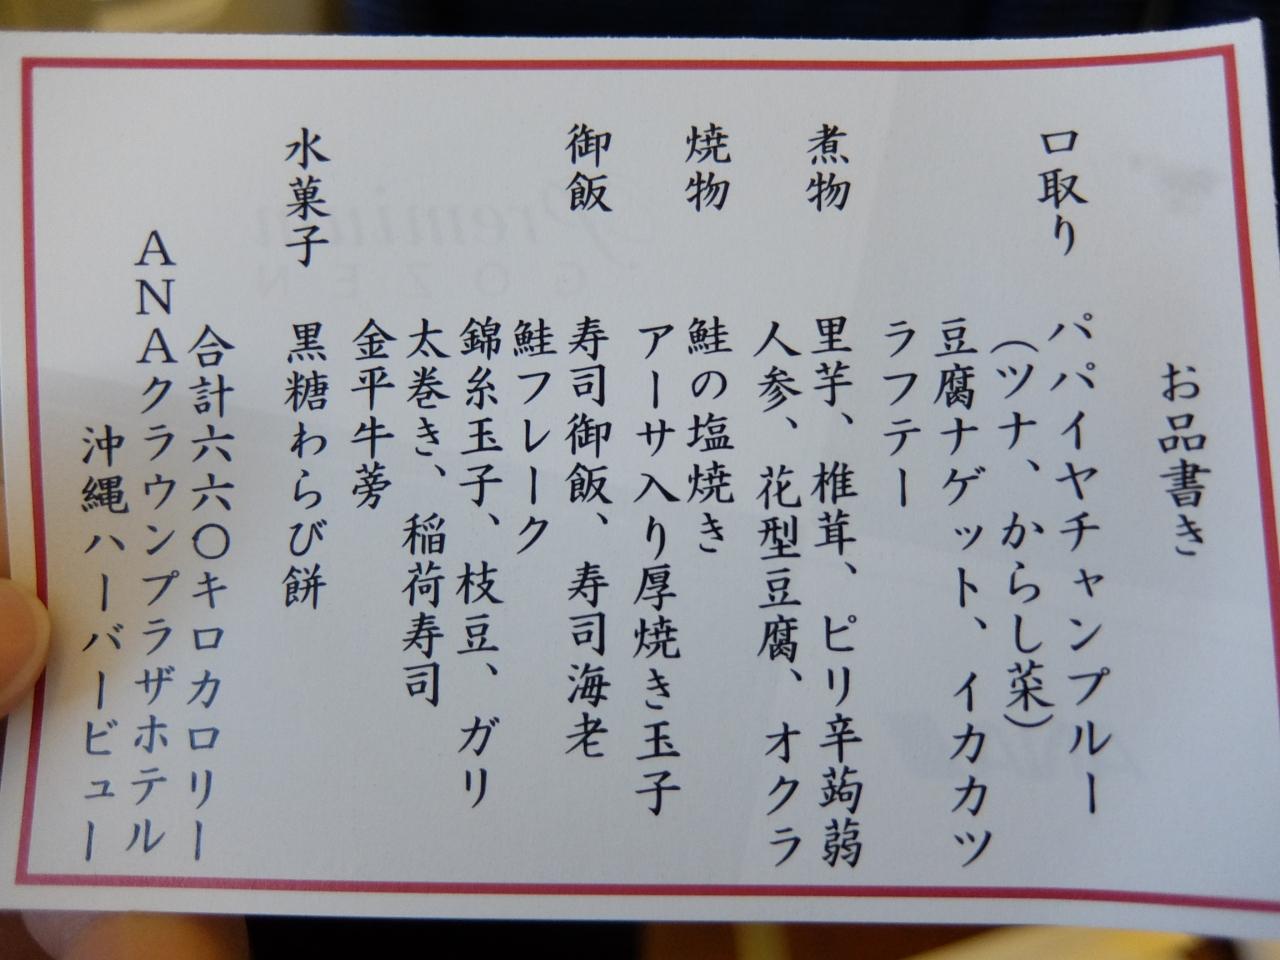 お品書き
口取り パパイヤチャンプルー
（ツナ、からし菜）
豆腐ナゲット、イカカツ
ラフテー
煮物 里芋、椎茸、ピリ辛蒟蒻
人参、花型豆腐、オクラ
焼物 鮭の塩焼き
アーサ入り厚焼き玉子
御飯 寿司御飯、寿司海老
鮭フレーク
錦糸玉子、枝豆、ガリ
太巻き、稲荷寿司
金平牛蒡
水菓子 黒糖わらび餅
合計六六〇キロカロリー
ANAクラウンプラザホテル
沖縄ハーバービュー
Premium
GOZEN